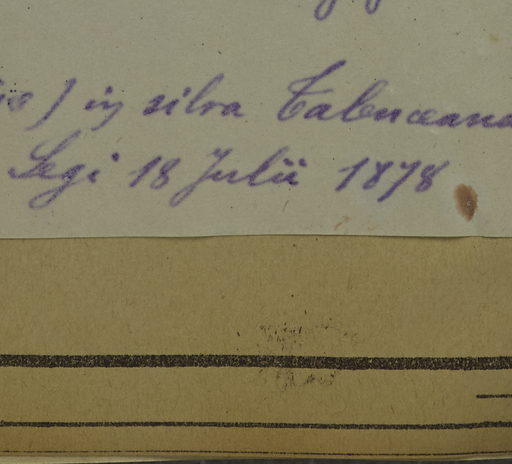 ) in silva Talenceana
Legi 18 Julii 1878